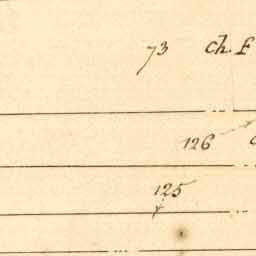 73 ch. F
126
125